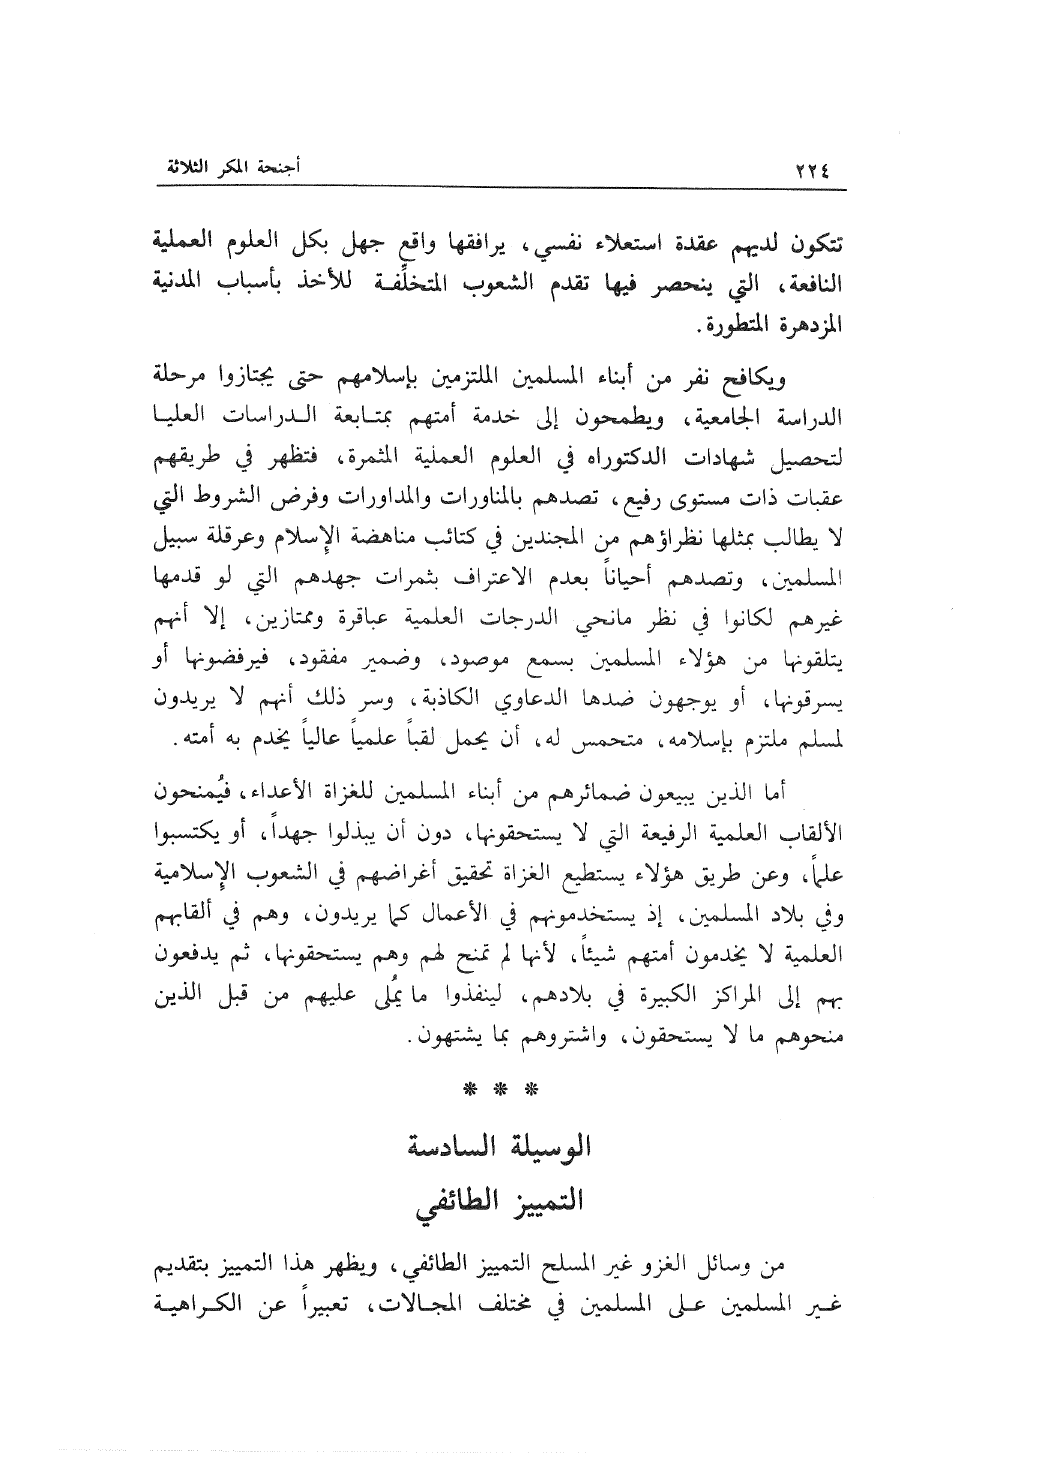 ٢٢٤ أجنحة المكر الثلاثة
تتكون لديهم عقدة استعلاء نفسي، يرافقها واقع جهل بكل العلوم العملية
النافعة، التي ينحصر فيها تقدم الشعوب المتخلِّفة للأخذ بأسباب المدنية
المزدهرة المتطورة.
ويكافح نفر من أبناء المسلمين الملتزمين بإسلامهم حتى يجتازوا مرحلة
الدراسة الجامعية، ويطمحون إلى خدمة أمتهم بمتابعة الدراسات العليا
لتحصيل شهادات الدكتوراه في العلوم العملية المثمرة، فتظهر في طريقهم
عقبات ذات مستوى رفيع، تصدهم بالمناورات والمداورات وفرض الشروط التي
لا يطالب بمثلها نظراؤهم من المجندين في كتائب مناهضة الإسلام وعرقلة سبيل
المسلمين، وتصدهم أحياناً بعدم الاعتراف بثمرات جهدهم التي لو قدمها
غيرهم لكانوا في نظر مانحي الدرجات العلمية عباقرة وممتازين، إلا أنهم
يتلقونها من هؤلاء المسلمين بسمع موصود، وضمير مفقود، فيرفضونها أو
يسرقونها، أو يوجهون ضدها الدعاوي الكاذبة، وسر ذلك أنهم لا يريدون
لمسلم ملتزم بإسلامه، متحمس له، أن يحمل لقباً علمياً عالياً يخدم به أمته.
أما الذين يبيعون ضمائرهم من أبناء المسلمين للغزاة الأعداء، فيُمنحون
الألقاب العلمية الرفيعة التي لا يستحقونها، دون أن يبذلوا جهداً، أو يكتسبوا
علماً، وعن طريق هؤلاء يستطيع الغزاة تحقيق أغراضهم في الشعوب الإسلامية
وفي بلاد المسلمين، إذ يستخدمونهم في الأعمال كما يريدون، وهم في ألقابهم
العلمية لا يخدمون أمتهم شيئاً، لأنها لم تمنح لهم وهم يستحقونها، ثم يدفعون
بهم إلى المراكز الكبيرة في بلادهم، لينفذوا ما يُملى عليهم من قبل الذين
منحوهم ما لا يستحقون، واشتروهم بما يشتهون.
* * *
الوسيلة السادسة
التمييز الطائفي
من وسائل الغزو غير المسلح التمييز الطائفي، ويظهر هذا التمييز بتقديم
غير المسلمين على المسلمين في مختلف المجالات، تعبيراً عن الكراهية